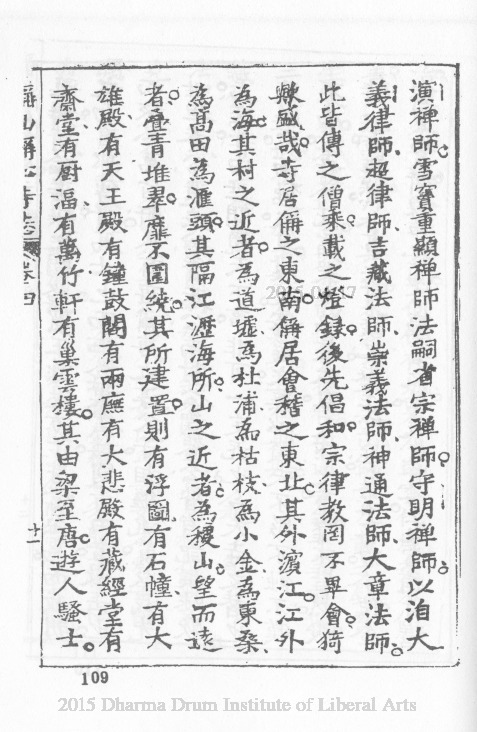 演禪師雪竇重顯禪師法嗣省宗禪師守明禪師以洎大
義律師超律師吉藏法師崇義法師神通法師大章法師
此皆傳之僧乘載之燈錄後先倡和宗律教罔不畢會猗
歟盛哉寺居偁之東南偁居會稽之東北其外濱江江外
為海其村之近者為道墟為杜浦為枯枝為小金為東桑
為高田為滙頭其隔江瀝海所山之近者為稷山望而遠
者疊青堆翠靡不圍繞其所建置則有浮圖有石幢有大
雄殿有天王殿有鐘鼓閣有兩廡有大悲殿有藏經堂有
齋堂有廚湢有萬竹軒有巢雲樓其由梁至唐遊人騷士
稱心寺志 卷四
十一
109
2015 Dharma Drum Institute of Liberal Arts